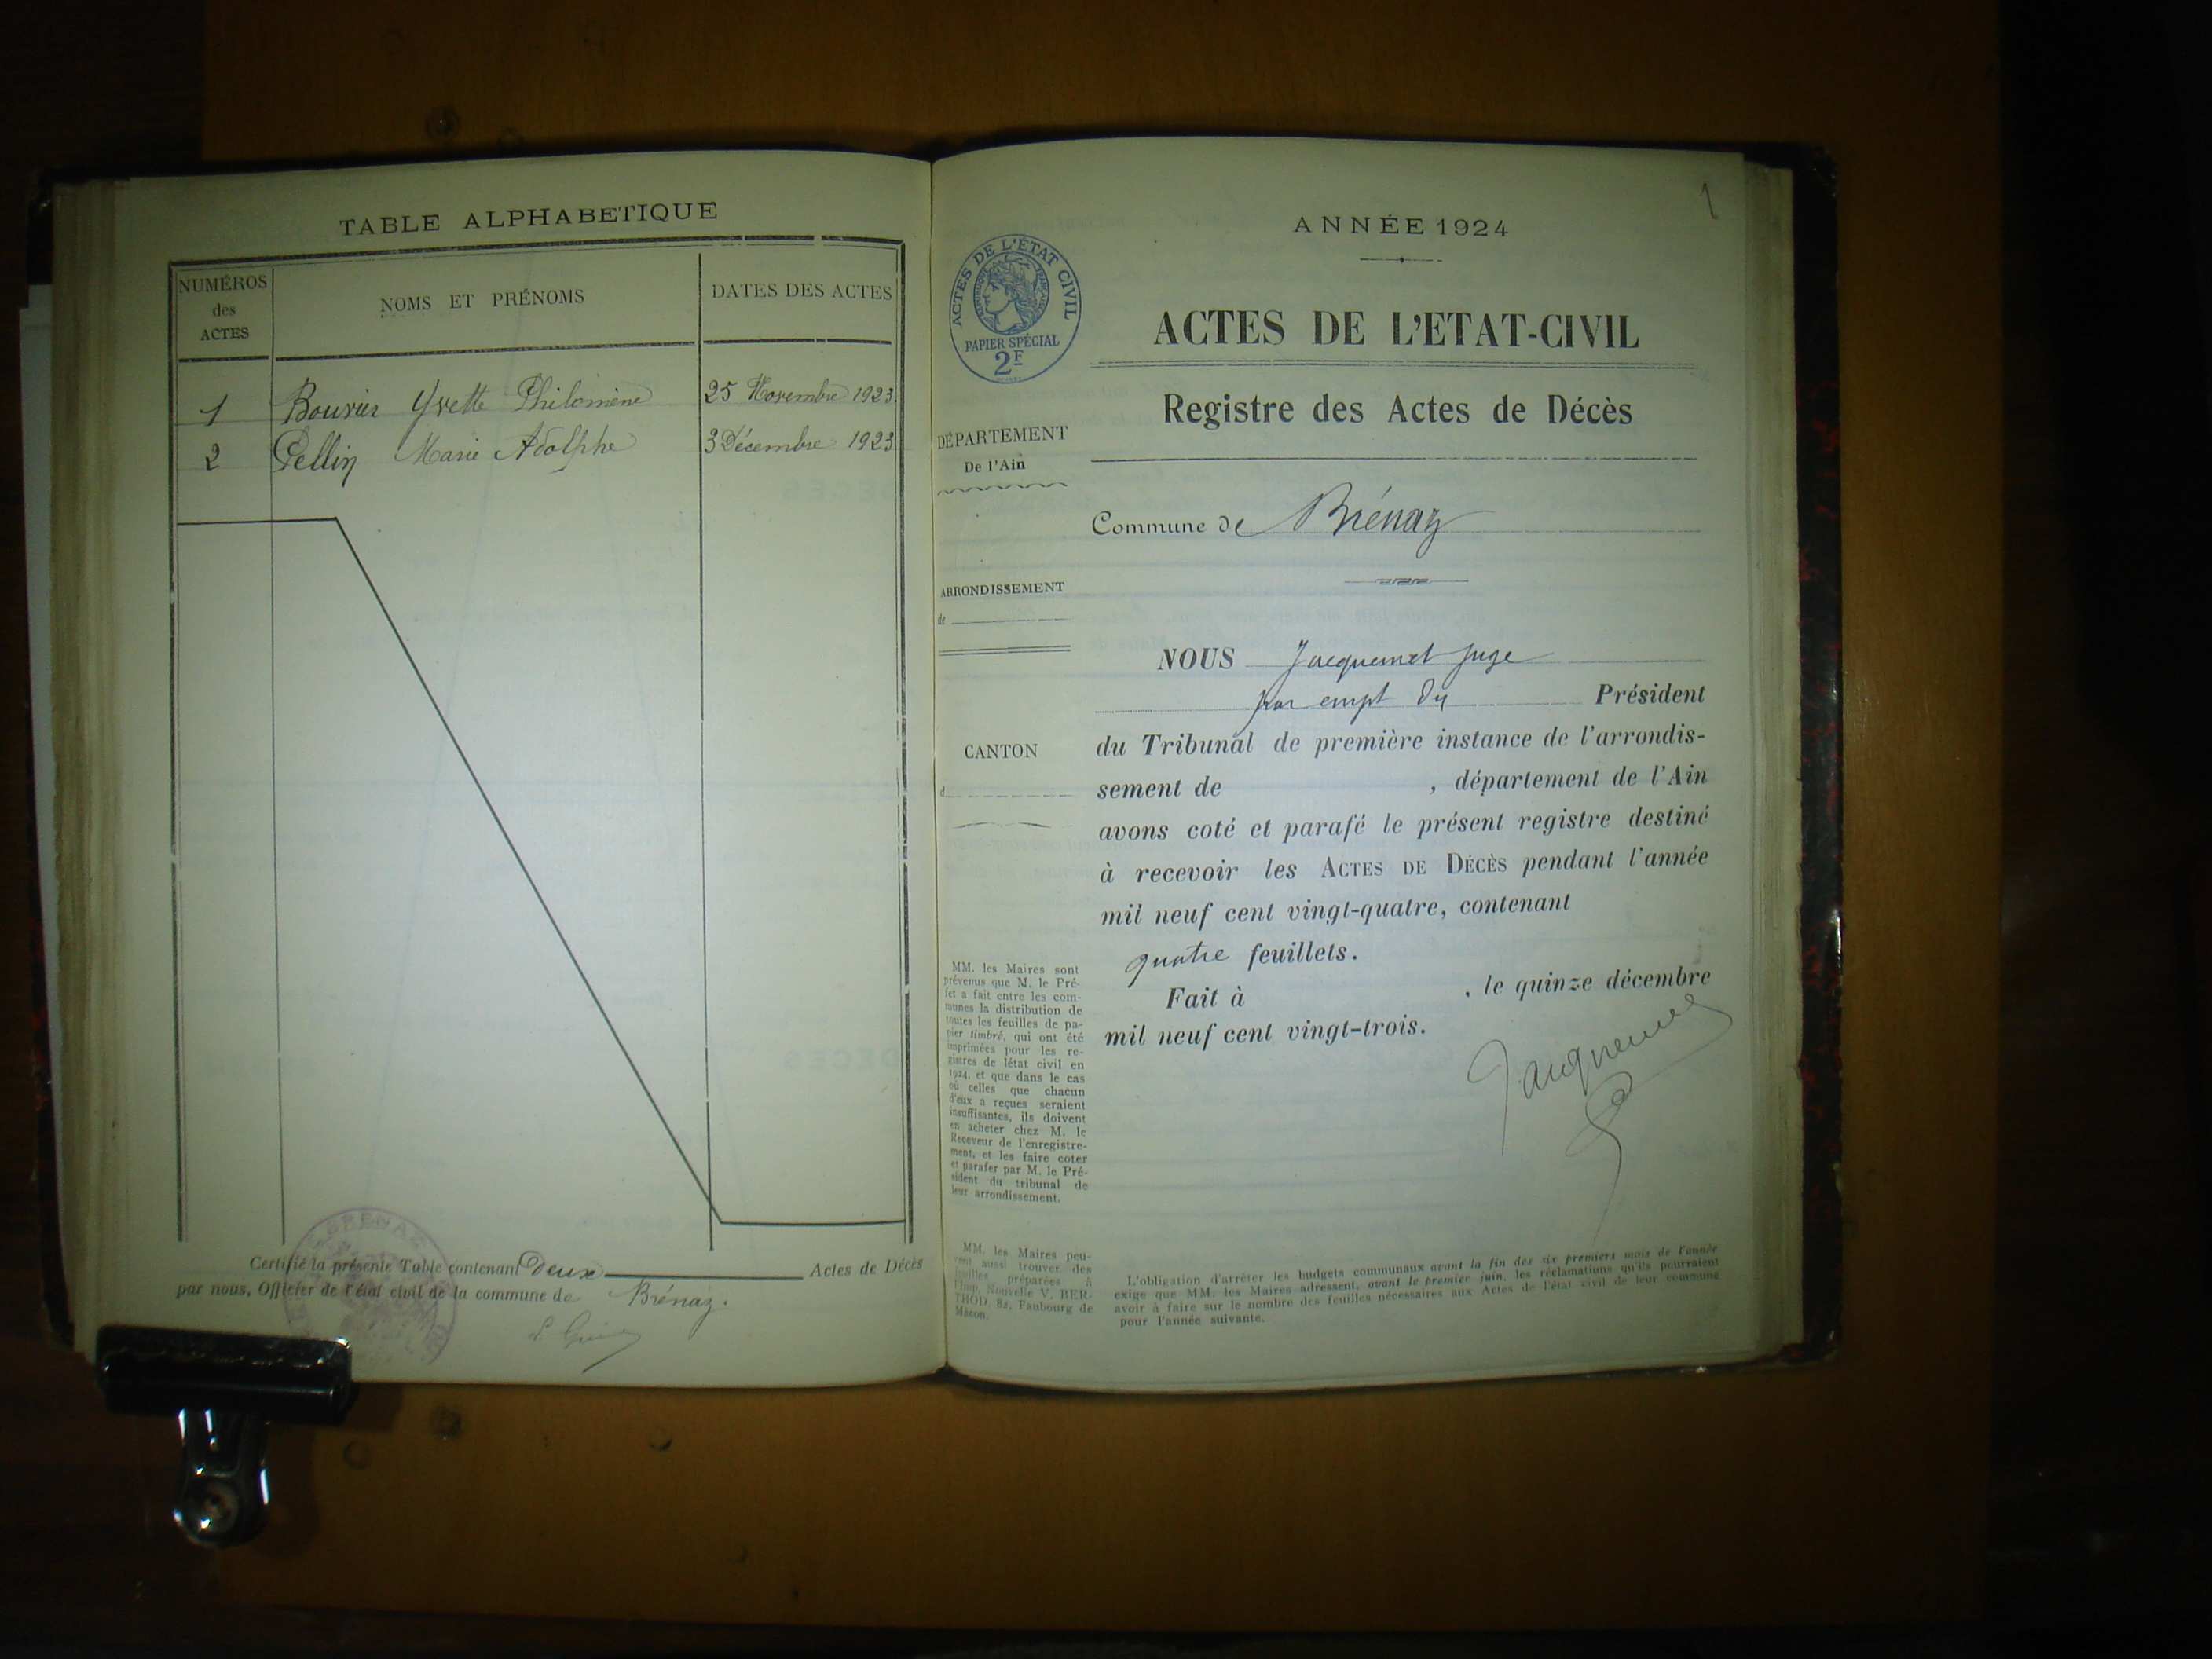 TABLE ALPHABETIQUE
NUMÉROS
des
ACTES
NOMS ET PRÉNOMS
DATES DES ACTES
1 Bouvier Yvette Philomène 25 Novembre 1923.
2 Pellin Marie Adolphe 3 Décembre 1923
Certifié la présente Table contenant deux Actes de Décès
par nous, Officier de l'état civil de la commune de Brénaz.
1
ANNÉE 1924
ACTES DE L'ÉTAT CIVIL
PAPIER SPÉCIAL
2F
ACTES DE L'ETAT-CIVIL
Registre des Actes de Décès
DÉPARTEMENT
De l'Ain
Commune de Brénaz
ARRONDISSEMENT
de
NOUS Jacquemet Juge
par empt du Président
CANTON
d
du Tribunal de première instance de l'arrondis-
sement de , département de l'Ain
avons coté et parafé le présent registre destiné
à recevoir les ACTES DE DÉCÈS pendant l'année
mil neuf cent vingt-quatre, contenant
quatre feuillets.
Fait à , le quinze décembre
mil neuf cent vingt-trois.
Jacquemet
MM. les Maires sont
prévenus que M. le Pré-
fet a fait entre les com-
munes la distribution de
toutes les feuilles de pa-
pier timbré, qui ont été
imprimées pour les re-
gistres de létat civil en
1924, et que dans le cas
où celles que chacun
d'eux a reçues seraient
insuffisantes, ils doivent
en acheter chez M. le
Receveur de l'enregistre-
ment, et les faire coter
et parafer par M. le Pré-
sident du tribunal de
leur arrondissement.
MM. les Maires peu-
vent aussi trouver des
feuilles préparées à
l'Imp. Nouvelle V. BER-
THOD, 82, Faubourg de
Mâcon.
L'obligation d'arrêter les budgets communaux avant la fin des six premiers mois de l'année
exige que MM. les Maires adressent, avant le premier juin, les réclamations qu'ils pourraient
avoir à faire sur le nombre des feuilles nécessaires aux Actes de l'état civil de leur commune
pour l'année suivante.